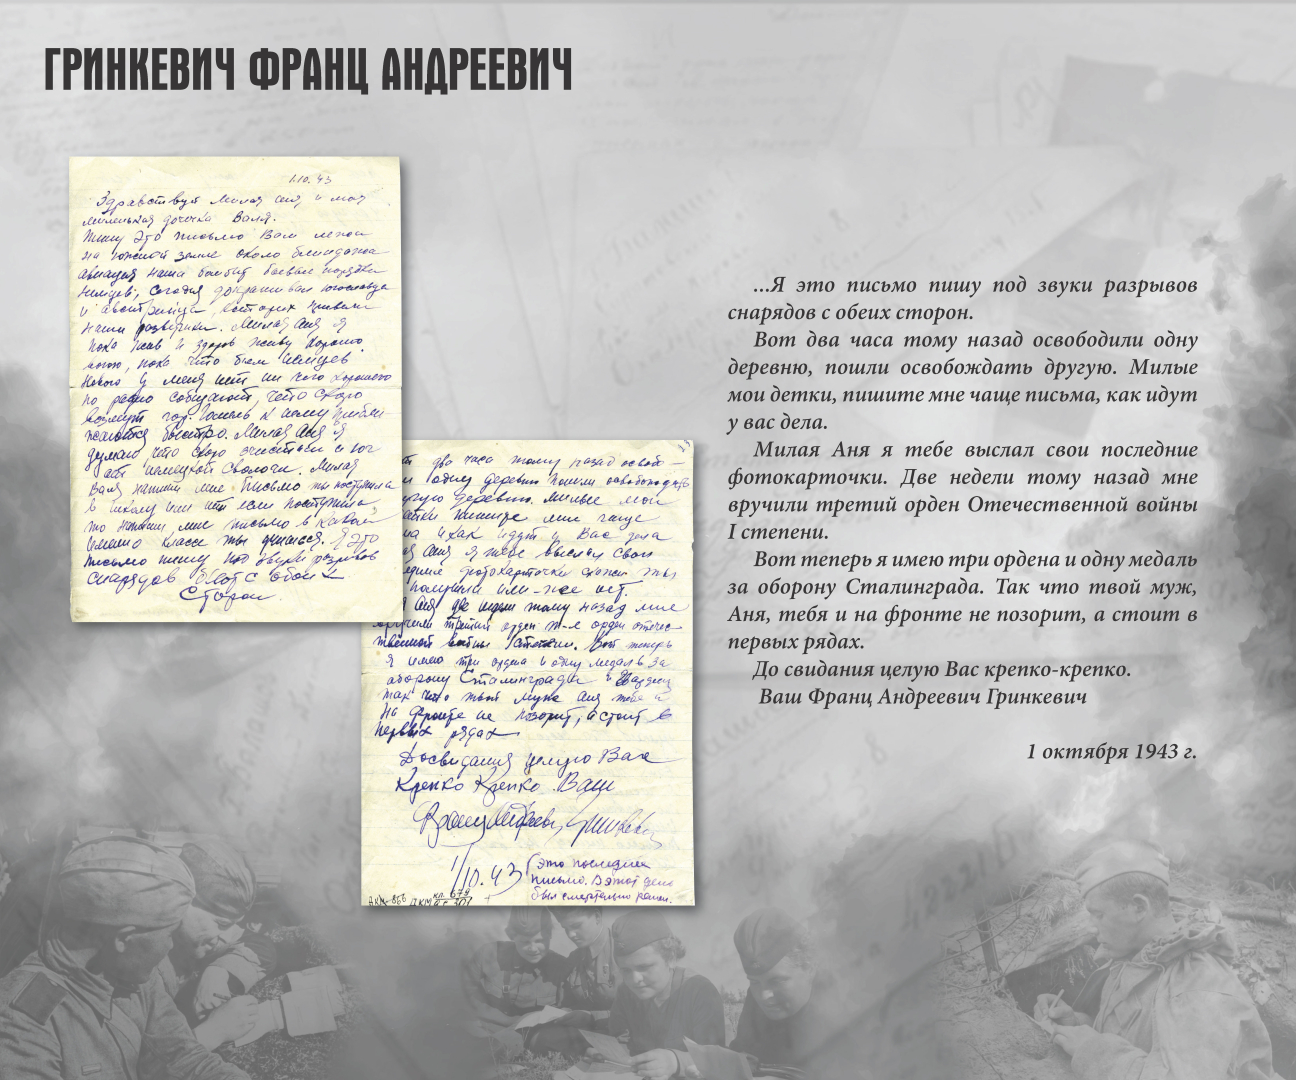 ГРИНКЕВИЧ ФРАНЦ АНДРЕЕВИЧ
1.10.43
Здравствуй милая Аня, и моя
миленькая дочечка Валя.
Пишу это письмо Вам лежа
на южной земле около блиндажа
авиация наша бомбит боевые порядки
немцев, сегодня допрашивал югославца
и австрийца, которых привели
наши разведчики. Милая Аня я
пока жив и здоров живу хорошо
пока что бьем немцев.
Нового у меня нет ни чего хорошего
по радио сообщают, что скоро
возьмут гор. Гомель к нему
быстро. Милая Аня я
думаю что скоро очистим и юг
от немецкой сволочи. Милая
Валя напиши мне письмо ты поступила
в школу или нет если поступила,
то напиши мне письмо в каком
именно классе ты учишься. Я это
письмо пишу под звуки разрывов
снарядов с обоих
сторон.
два часа тому назад освоб-
одну деревню пошли освобождать
другую деревню. милые мои
детки пишите мне чаще
как идут у Вас дела
Аня я тебе выслал свои
фотокарточки ты
получила или же нет.
Аня две недели тому назад мне
вручили третий орден орден отечес
твенной войны степени. Вот теперь
я имею три ордена и одну медаль за
оборону Сталинграда
так что твой муж Аня тебя и
на фронте не позорит, а стоит в
первых рядах.
Досвидания целую Вас
Крепко Крепко. Ваш
Франц Андреевич Гринкевич
1/10.43
Это последнее
письмо. В этот день
был смертельно ранен.
...Я это письмо пишу под звуки разрывов
снарядов с обеих сторон.
Вот два часа тому назад освободили одну
деревню, пошли освобождать другую. Милые
мои детки, пишите мне чаще письма, как идут
у вас дела.
Милая Аня я тебе выслал свои последние
фотокарточки. Две недели тому назад мне
вручили третий орден Отечественной войны
I степени.
Вот теперь я имею три ордена и одну медаль
за оборону Сталинграда. Так что твой муж,
Аня, тебя и на фронте не позорит, а стоит в
первых рядах.
До свидания целую Вас крепко-крепко.
Ваш Франц Андреевич Гринкевич
1 октября 1943 г.